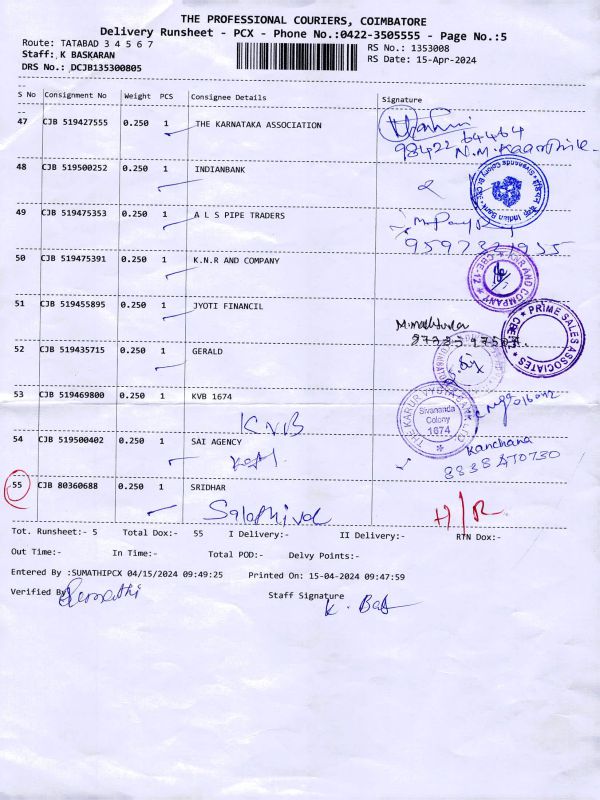 THE PROFESSIONAL COURIERS, COIMBATORE
Delivery Runsheet - PCX - Phone No.:0422-3505555 - Page No.:5
Route: TATABAD 3 4 5 6 7 RS No.: 1353008
Staff: K BASKARAN RS Date: 15-Apr-2024
DRS No.: DCJB135300805
S No Consignment No Weight PCS Consignee Details Signature
47 CJB 519427555 0.250 1 THE KARNATAKA ASSOCIATION
98422 64464
48 CJB 519500252 0.250 1 INDIANBANK
Indian Bank
49 CJB 519475353 0.250 1 A L S PIPE TRADERS
50 CJB 519475391 0.250 1 K.N.R AND COMPANY
KNR AND COMPANY CBE-12
51 CJB 519455895 0.250 1 JYOTI FINANCIL
PRIME SALES ASSOCIATES CBE
52 CJB 519435715 0.250 1 GERALD
53 CJB 519469800 0.250 1 KVB 1674
KVB
THE KARUR VYSYA BANK LTD
Sivananda
Colony
1674
54 CJB 519500402 0.250 1 SAI AGENCY
Kanchana
55 CJB 80360688 0.250 1 SRIDHAR
H/R
Tot. Runsheet:- 5 Total Dox:- 55 I Delivery:- II Delivery:- RTN Dox:-
Out Time:- In Time:- Total POD:- Delvy Points:-
Entered By :SUMATHIPCX 04/15/2024 09:49:25 Printed On: 15-04-2024 09:47:59
Verified By Staff Signature
K. Bas